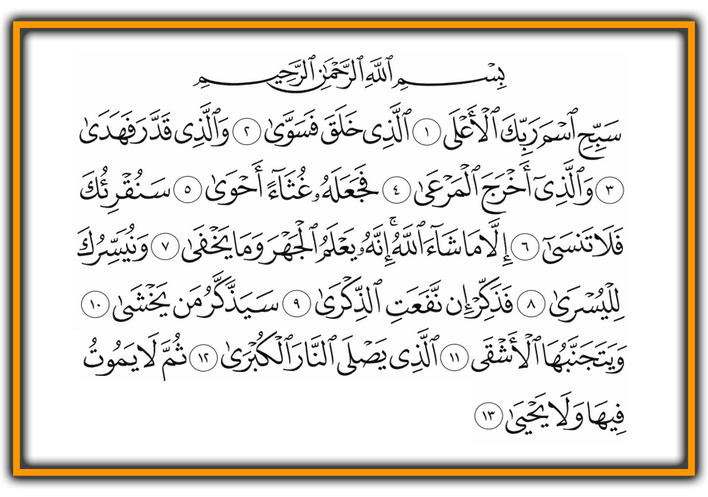 بِسْمِ ٱللَّهِ ٱلرَّحْمَٰنِ ٱلرَّحِيمِ
سَبِّحِ ٱسْمَ رَبِّكَ ٱلْأَعْلَى ١ ٱلَّذِى خَلَقَ فَسَوَّىٰ ٢ وَٱلَّذِى قَدَّرَ فَهَدَىٰ
٣ وَٱلَّذِىٓ أَخْرَجَ ٱلْمَرْعَىٰ ٤ فَجَعَلَهُۥ غُثَآءً أَحْوَىٰ ٥ سَنُقْرِئُكَ
فَلَا تَنسَىٰٓ ٦ إِلَّا مَا شَآءَ ٱللَّهُ ۚ إِنَّهُۥ يَعْلَمُ ٱلْجَهْرَ وَمَا يَخْفَىٰ ٧ وَنُيَسِّرُكَ
لِلْيُسْرَىٰ ٨ فَذَكِّرْ إِن نَّفَعَتِ ٱلذِّكْرَىٰ ٩ سَيَذَّكَّرُ مَن يَخْشَىٰ ١٠
وَيَتَجَنَّبُهَا ٱلْأَشْقَى ١١ ٱلَّذِى يَصْلَى ٱلنَّارَ ٱلْكُبْرَىٰ ١٢ ثُمَّ لَا يَمُوتُ
فِيهَا وَلَا يَحْيَىٰ ١٣